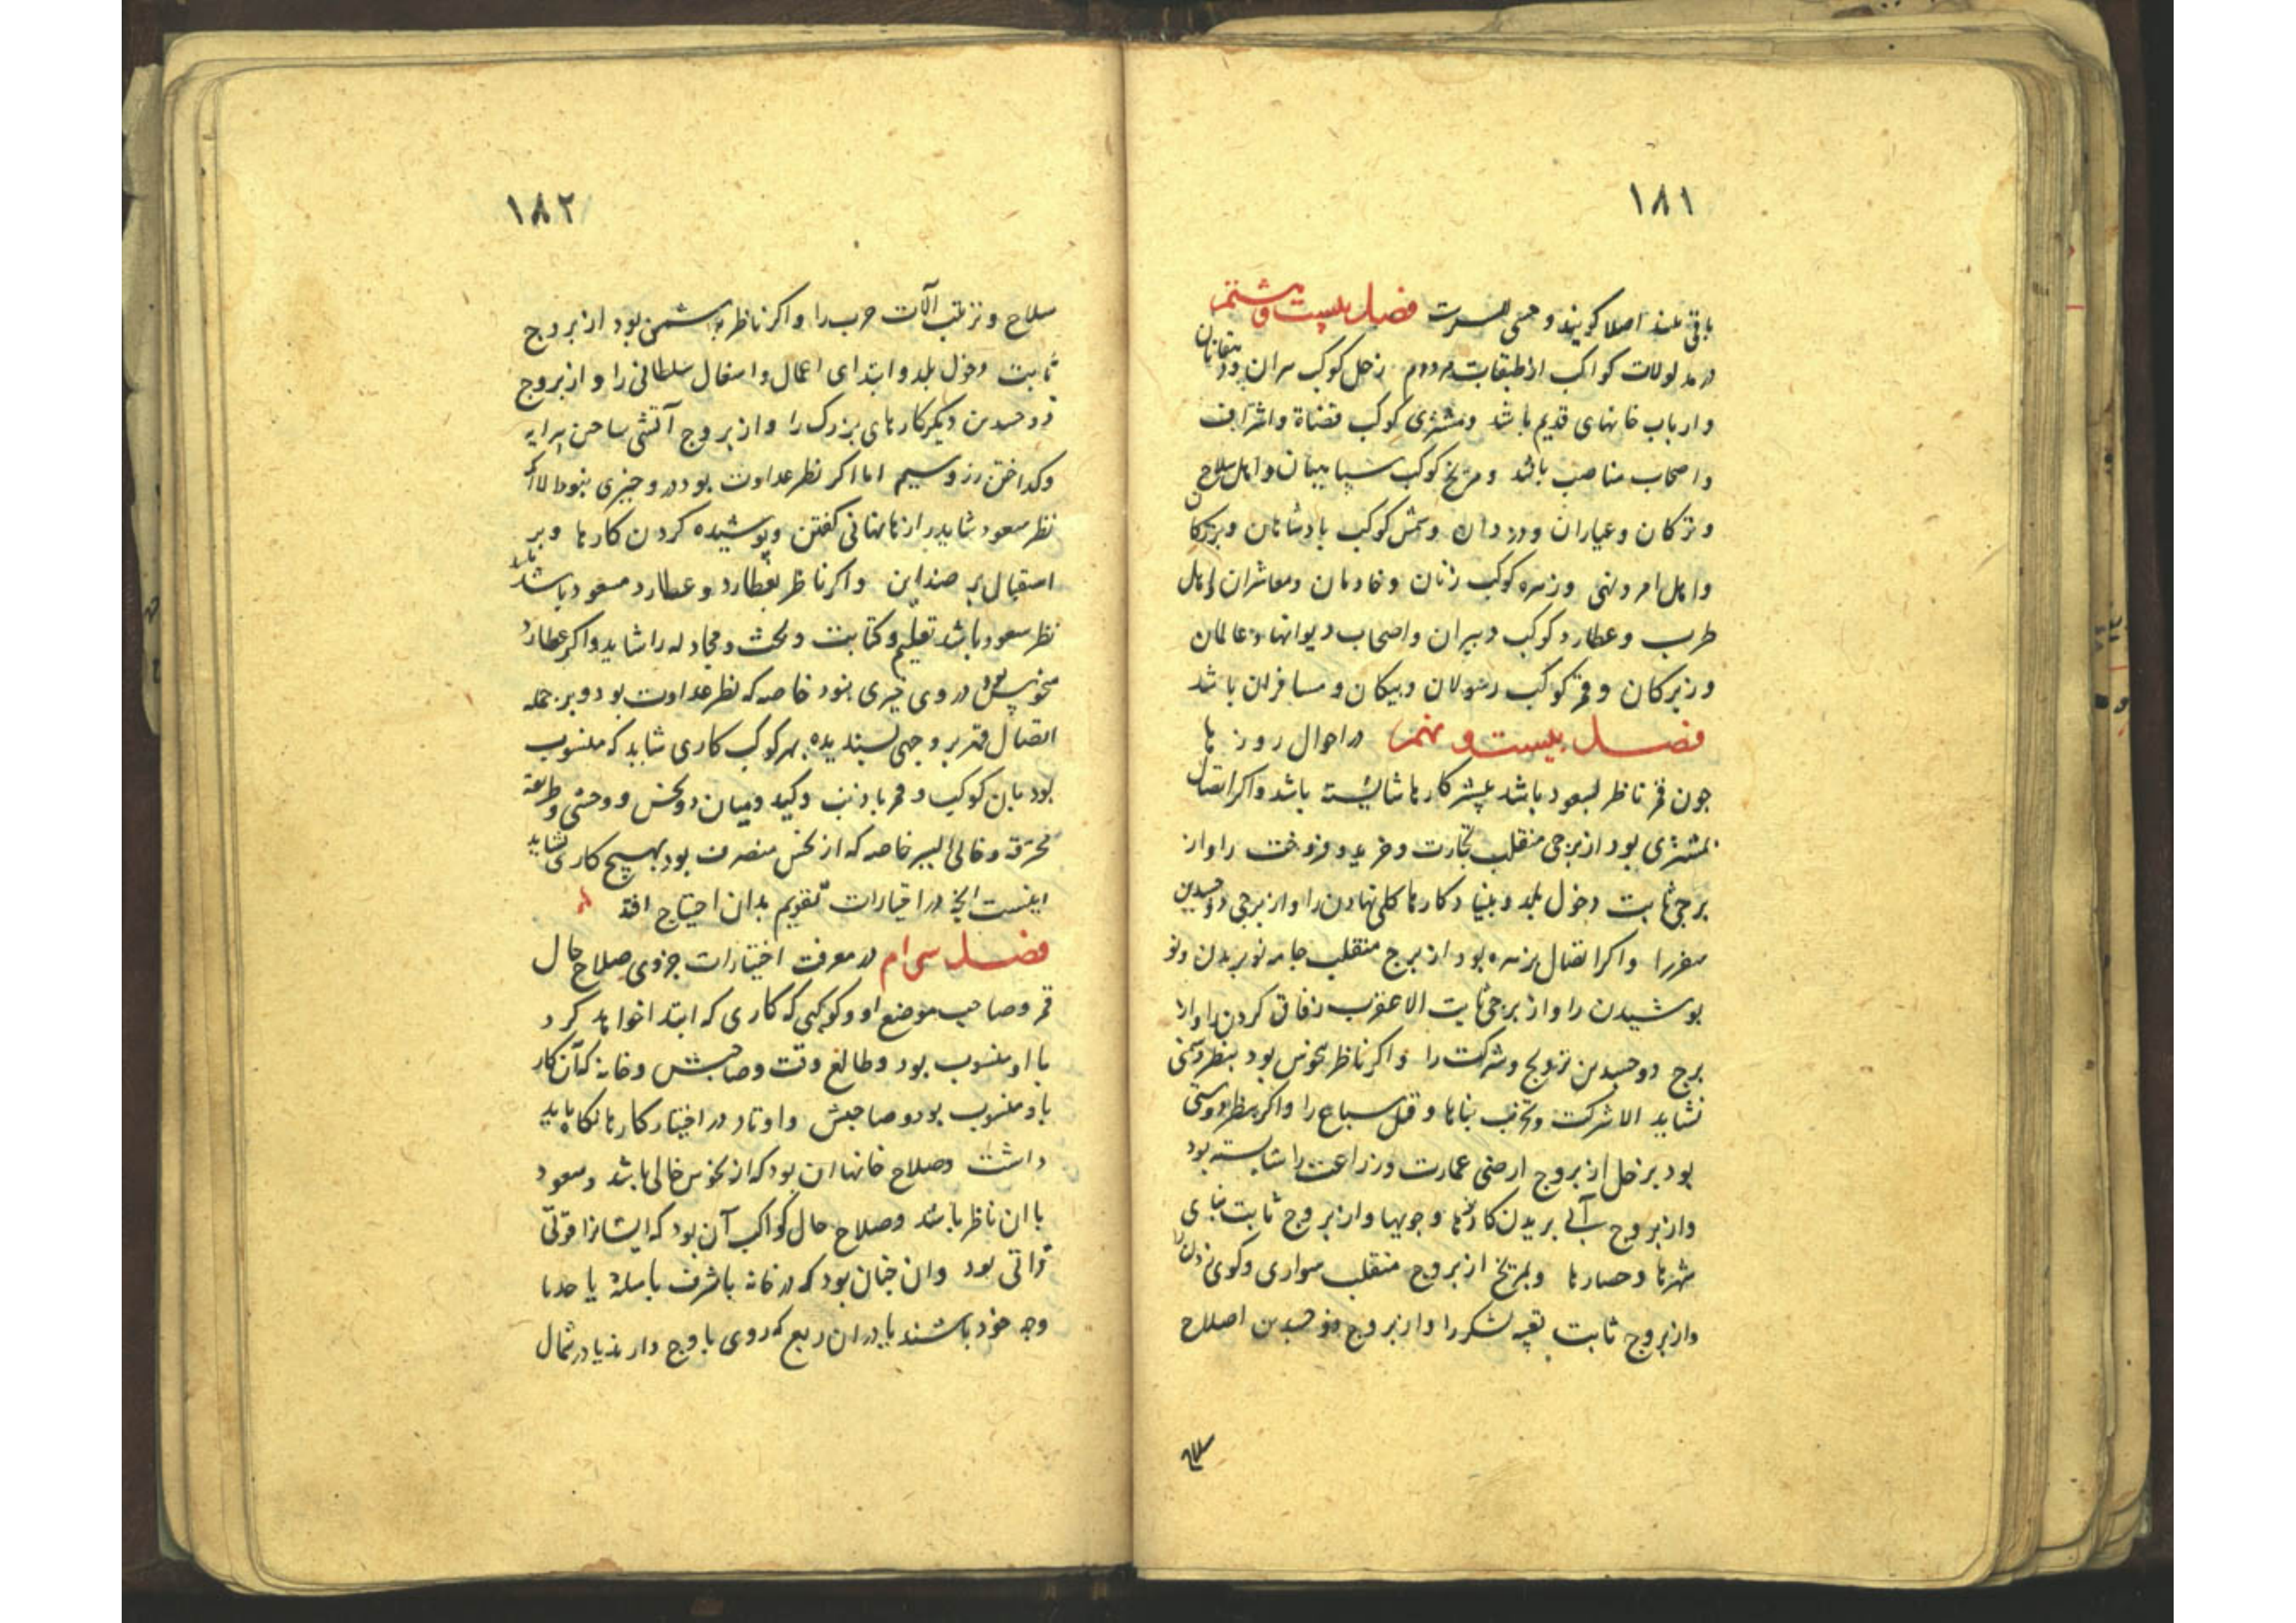 ١٨١
باقی بلند اصلا گویند وحشی السیرت فصل بیست و هشتم
در مدلولات کواکب از طبقات مردم زحل کوکب پیران و دهقانان
و ارباب خانهای قدیم باشد و مشتری کوکب قضاة و اشراف
و اصحاب مناصب باشد و مریخ کوکب سپاهیان و اهل سلاح
و ترکان و عیاران و دزدان و شمس کوکب پادشاهان و بزرکان
و اهل امر و نهی و زهره کوکب زنان و خادمان و معاشران و اهل
طرب و عطارد کوکب دبیران و اصحاب دیوانها و عالمان
و زیرکان و قمر کوکب رسولان و پیکان و مسافران باشد
فصل بیست و نهم در احوال روز ها
جون قمر ناظر بسعود باشد بیشتر کارها شایسته باشد و اکر اتصال
بمشتری بود از برجی منقلب تجارت و خرید و فروخت را و از
برجی ثابت دخول بلد و بنیاد کارها کلی نهادن را و از برجی دو جسدین
سفر را و اکر اتصال بزهره بود از برج منقلب جامه نو بریدن و نو
پوشیدن را و از برجی ثابت الا عقرب زفاف کردن را و از
برج دو جسدین تزویج و شرکت را و اکر ناظر بنحوس بود بنظر دشمنی
نشاید الا شرکت و تخریب بناها و قتل سباع را و اکر بنظر دوستی
بود بزحل از بروج ارضی عمارت و زراعت را شایسته بود
و از بروج آبی بریدن کاریزها و جویها و از بروج ثابت بنای
شهرها و حصارها و بمریخ از بروج منقلب سواری و کوی زدن را
و از بروج ثابت تعبیه لشکر را و از بروج ذو جسدین اصلاح
سلاح
١٨٢
سلاح و ترتیب آلات حرب را و اکر ناظر بشمس بود از بروج
ثابت دخول بلد و ابتدای اعمال و اشغال سلطانی را و از بروج
ذو جسدین دیکر کارهای بزرک را و از بروج آتشی ساختن پیرایه
و کداختن زر و سیم اما اکر نظر عداوت بود در و چیزی نبود الا آنکه
نظر سعود شاید رازها نهانی کفتن و پوشیده کردن کارها و بر
استقبال بر ضد این و اکر ناظر بعطارد و عطارد مسعود باشد
نظر سعود باشد تعلیم و کتابت و بحث و مجادله را شاید و اکر عطارد
منحوس بود در وی خیری نبود خاصه که نظر عداوت بود و بر جمله
اتصال قمر بر وجهی پسندیده بهر کوکب کاری شاید که منسوب
بود بان کوکب و قمر با ذنب و کید و میان دو نحس و وحشی و طریقه
محترقه و خالی السیر خاصه که از نحس منصرف بود بهیچ کاری نشاید
اینست آنچه در اختیارات تقویم بدان احتیاج افتد
فصل سی ام در معرفت اختیارات جزوی صلاح حال
قمر و صاحب موضع او و کوکبی که کاری که ابتدا خواهد کرد
با او منسوب بود و طالع وقت و صاحبش و خانه که آن کار
باو منسوب بود و صاحبش و اوتاد در اختیار کارها نکاه باید
داشت و صلاح خانها ان بود که از نحوس خالی باشد و سعود
با ان ناظر باشد و صلاح حال کواکب آن بود که ایشانرا قوتی
ذاتی بود و ان جنان بود که در خانه یا شرف یا مثلثه یا حد یا
وجه خود باشند یا در ان ربع که روی باوج دارند یا در شمال